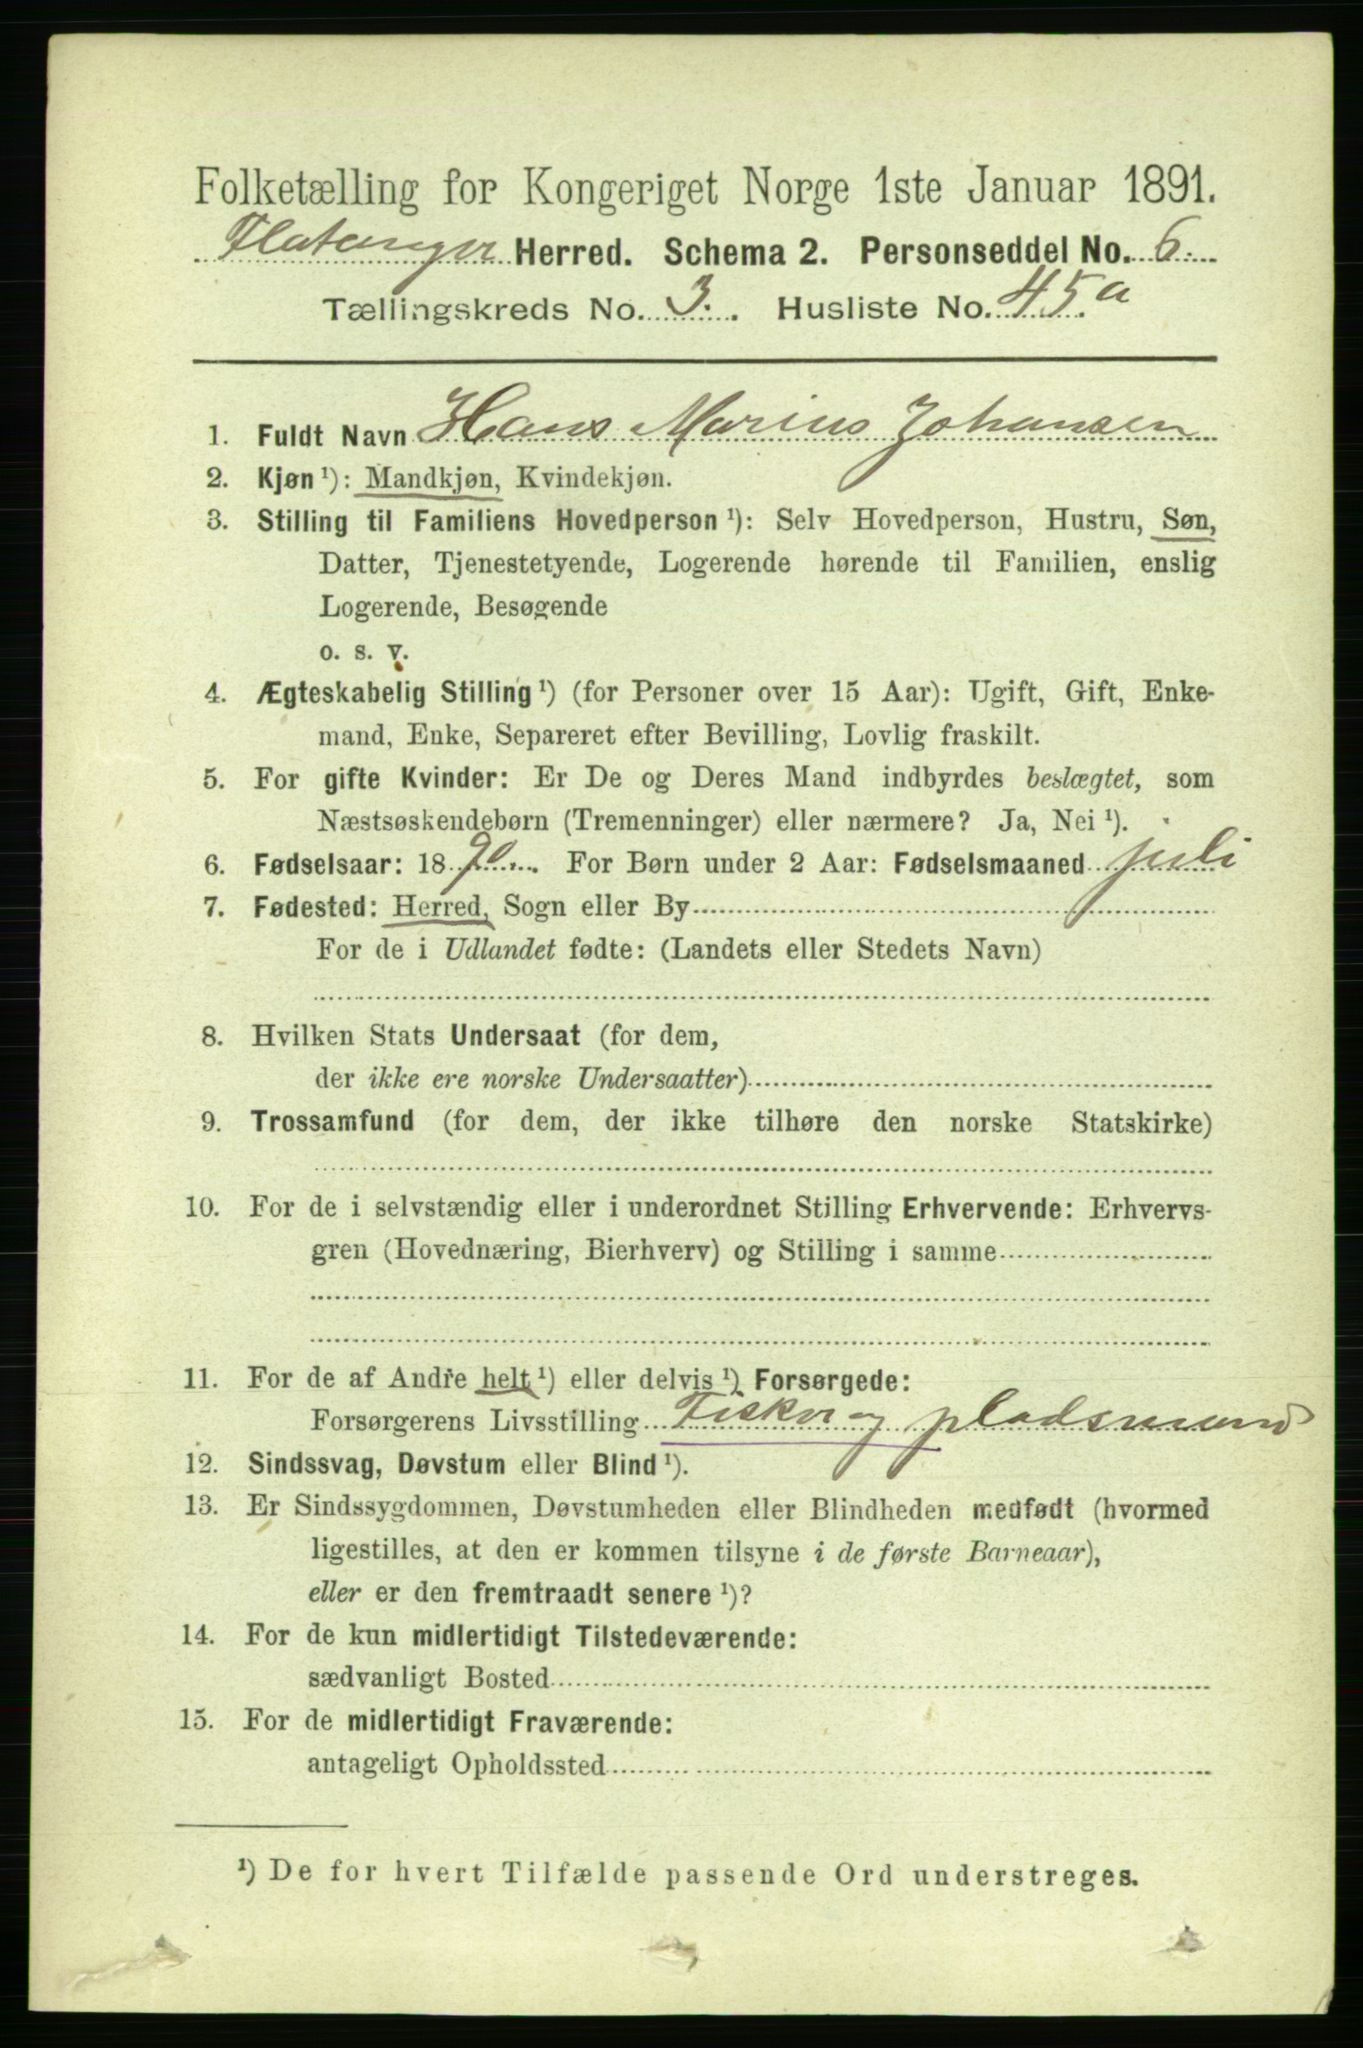 Folketælling for Kongeriget Norge 1ste Januar 1891.
Flatanger Herred. Schema 2. Personseddel No. 6.
Tællingskreds No. 3. Husliste No. 45a
1. Fuldt Navn Hans Marius Johansen
2. Kjøn ¹): Mandkjøn, Kvindekjøn.
3. Stilling til Familiens Hovedperson ¹): Selv Hovedperson, Hustru, Søn,
Datter, Tjenestetyende, Logerende hørende til Familien, enslig
Logerende, Besøgende
o. s. v.
4. Ægteskabelig Stilling ¹) (for Personer over 15 Aar): Ugift, Gift, Enke-
mand, Enke, Separeret efter Bevilling, Lovlig fraskilt.
5. For gifte Kvinder: Er De og Deres Mand indbyrdes beslægtet, som
Næstsøskendebørn (Tremenninger) eller nærmere? Ja, Nei ¹).
6. Fødselsaar: 1890. For Børn under 2 Aar: Fødselsmaaned juli
7. Fødested: Herred, Sogn eller By
For de i Udlandet fødte: (Landets eller Stedets Navn)
8. Hvilken Stats Undersaat (for dem,
der ikke ere norske Undersaatter)
9. Trossamfund (for dem, der ikke tilhøre den norske Statskirke)
10. For de i selvstændig eller i underordnet Stilling Erhvervende: Erhvervs-
gren (Hovednæring, Bierhverv) og Stilling i samme
11. For de af Andre helt ¹) eller delvis ¹) Forsørgede:
Forsørgerens Livsstilling Fisker og pladsmand
12. Sindssvag, Døvstum eller Blind ¹).
13. Er Sindssygdommen, Døvstumheden eller Blindheden medfødt (hvormed
ligestilles, at den er kommen tilsyne i de første Barneaar),
eller er den fremtraadt senere ¹)?
14. For de kun midlertidigt Tilstedeværende:
sædvanligt Bosted
15. For de midlertidigt Fraværende:
antageligt Opholdssted
¹) De for hvert Tilfælde passende Ord understreges.